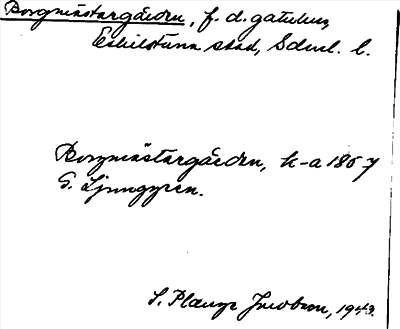 Borgmästargärdn, f. d. gatukv,
Eskilstuna stad, Söderml. l.
Borgmästargården, k-a 1857
G. Ljunggren.
S. Plange Jacobson, 1943.